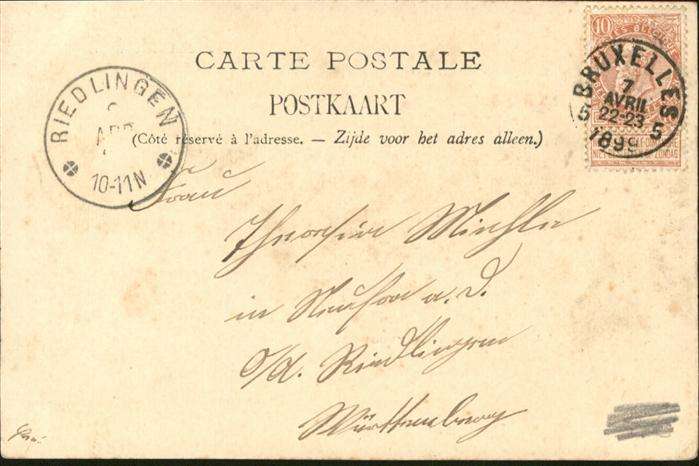 CARTE POSTALE
POSTKAART
(Côté réservé à l'adresse. — Zijde voor het adres alleen.)
RIEDLINGEN
APR
10-11N
10
BRUXELLES
7
AVRIL
5 22-23 5
1899
Frau
in a. d.
o/a. Riedlingen
Württemberg